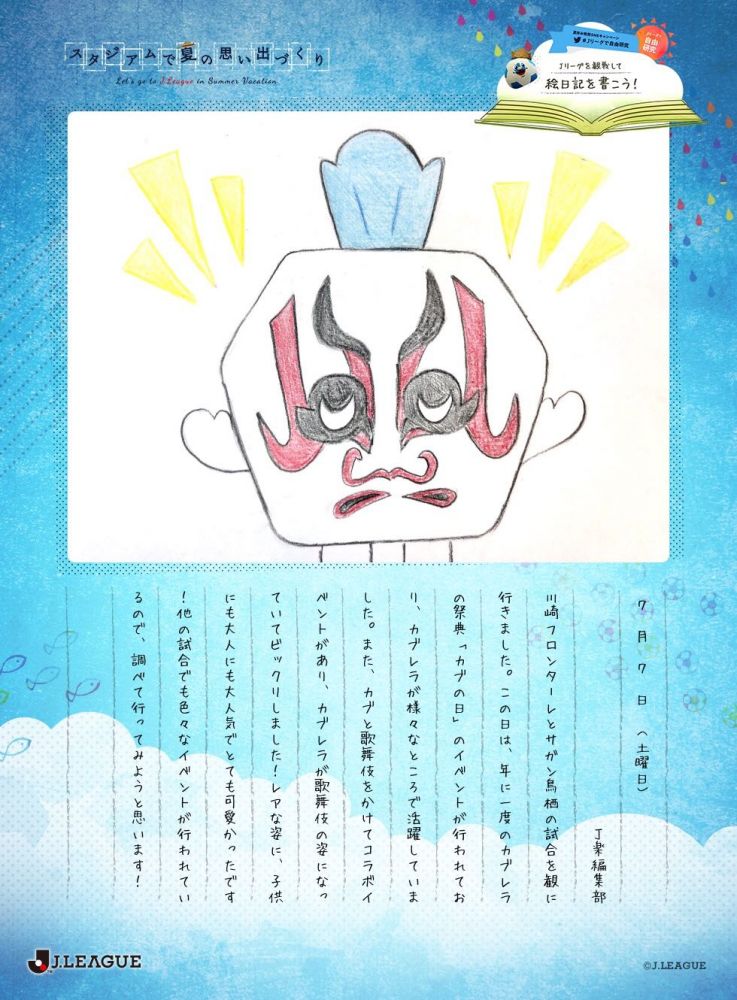 スタジアムで夏の思い出づくり
Let's go to J.League in Summer Vacation
#Jリーグで自由研究
自由
研究
Jリーグを観戦して
絵日記を書こう!
7月7日(土曜日)
J楽編集部
川崎フロンターレとサガン鳥栖の試合を観に
行きました。この日は、年に一度のカブレラ
の祭典「カブの日」のイベントが行われてお
り、カブレラが様々なところで活躍していま
した。また、カブと歌舞伎をかけてコラボイ
ベントがあり、カブレラが歌舞伎の姿になっ
ていてビックリしました!レアな姿に、子供
にも大人にも大人気でとても可愛かったです
!他の試合でも色々なイベントが行われてい
るので、調べて行ってみようと思います!
J.LEAGUE
©J.LEAGUE